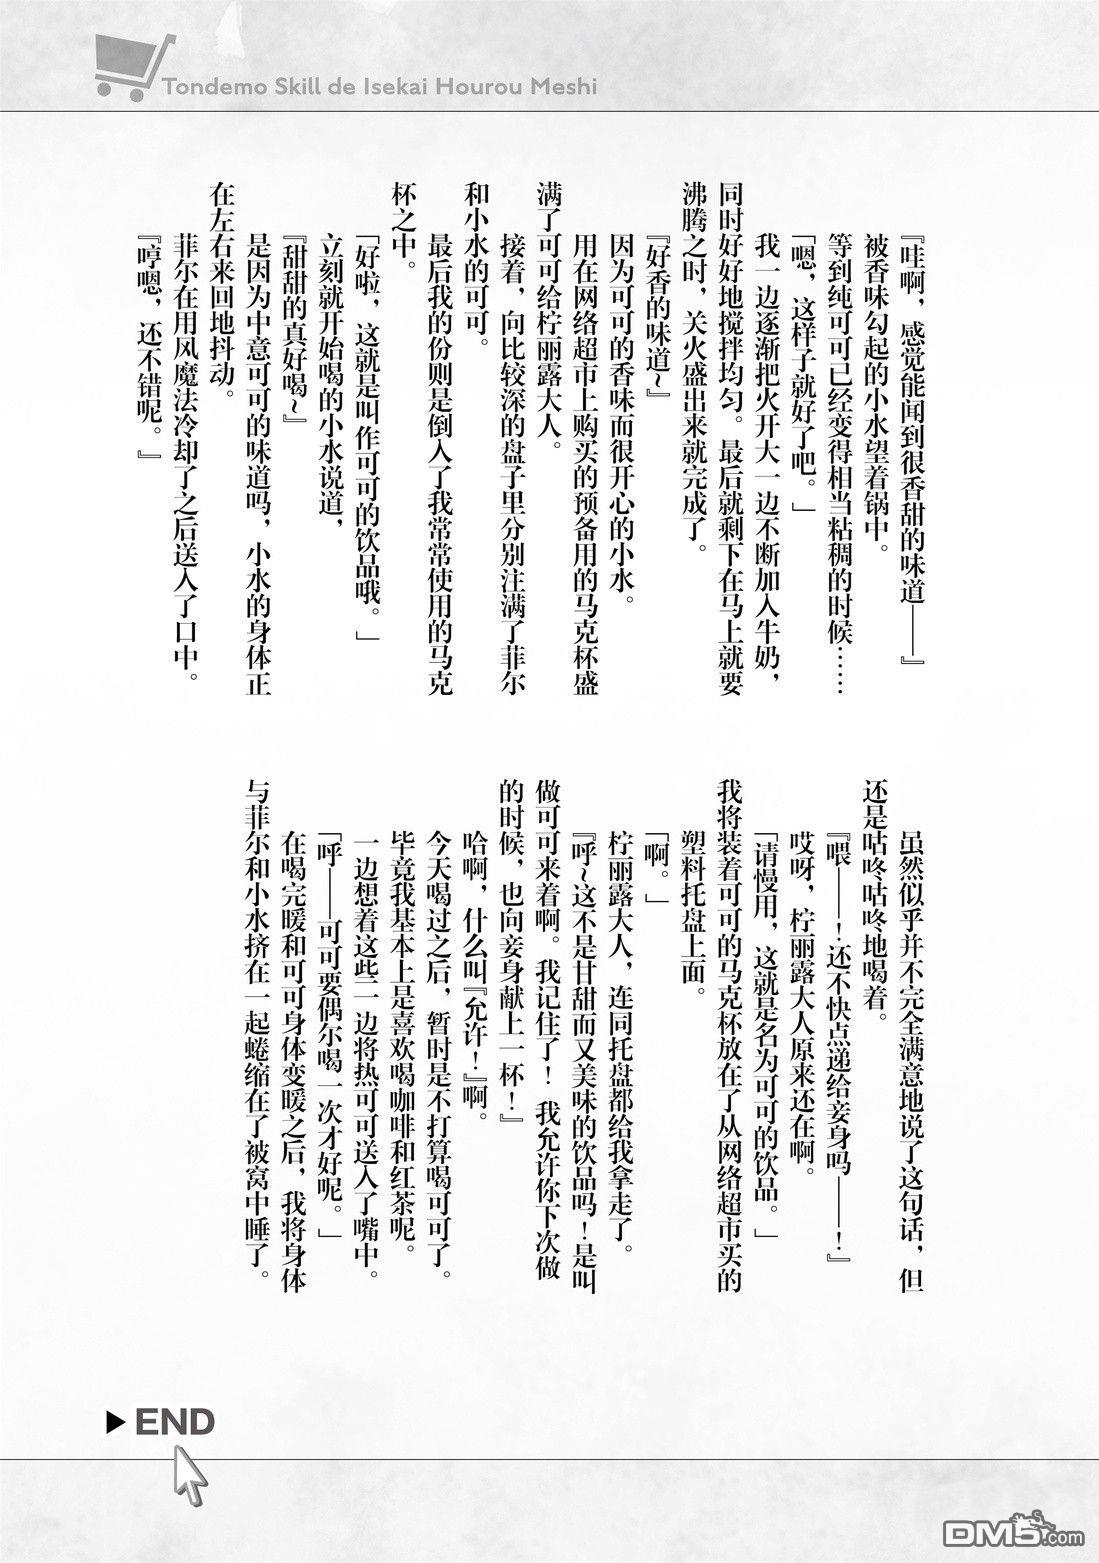 Tondemo Skill de Isekai Hourou Meshi
『哇啊，感觉能闻到很香甜的味道——』
被香味勾起的小水望着锅中。
等到纯可可已经变得相当粘稠的时候……
「嗯，这样子就好了吧。」
我一边逐渐把火开大一边不断加入牛奶，
同时好好地搅拌均匀。最后就剩下在马上就要
沸腾之时，关火盛出来就完成了。
『好香的味道~』
因为可可的香味而很开心的小水。
用在网络超市上购买的预备用的马克杯盛
满了可可给柠丽露大人。
接着，向比较深的盘子里分别注满了菲尔
和小水的可可。
最后我的份则是倒入了我常常使用的马克
杯之中。
「好啦，这就是叫作可可的饮品哦。」
立刻就开始喝的小水说道，
『甜甜的真好喝~』
是因为中意可可的味道吗，小水的身体正
在左右来回地抖动。
菲尔在用风魔法冷却了之后送入了口中。
『哼嗯，还不错呢。』
虽然似乎并不完全满意地说了这句话，但
还是咕咚咕咚地喝着。
『喂——！还不快点递给妾身吗——！』
哎呀，柠丽露大人原来还在啊。
「请慢用，这就是名为可可的饮品。」
我将装着可可的马克杯放在了从网络超市买的
塑料托盘上面。
「啊。」
柠丽露大人，连同托盘都给我拿走了。
『呼~这不是甘甜而又美味的饮品吗！是叫
做可可来着啊。我记住了！我允许你下次做
的时候，也向妾身献上一杯！』
哈啊，什么叫『允许！』啊。
今天喝过之后，暂时是不打算喝可可了。
毕竟我基本上是喜欢喝咖啡和红茶呢。
一边想着这些一边将热可可送入了嘴中。
「呼——可可要偶尔喝一次才好呢。」
在喝完暖和可可身体变暖之后，我将身体
与菲尔和小水挤在一起蜷缩在了被窝中睡了。
END
DM5.com